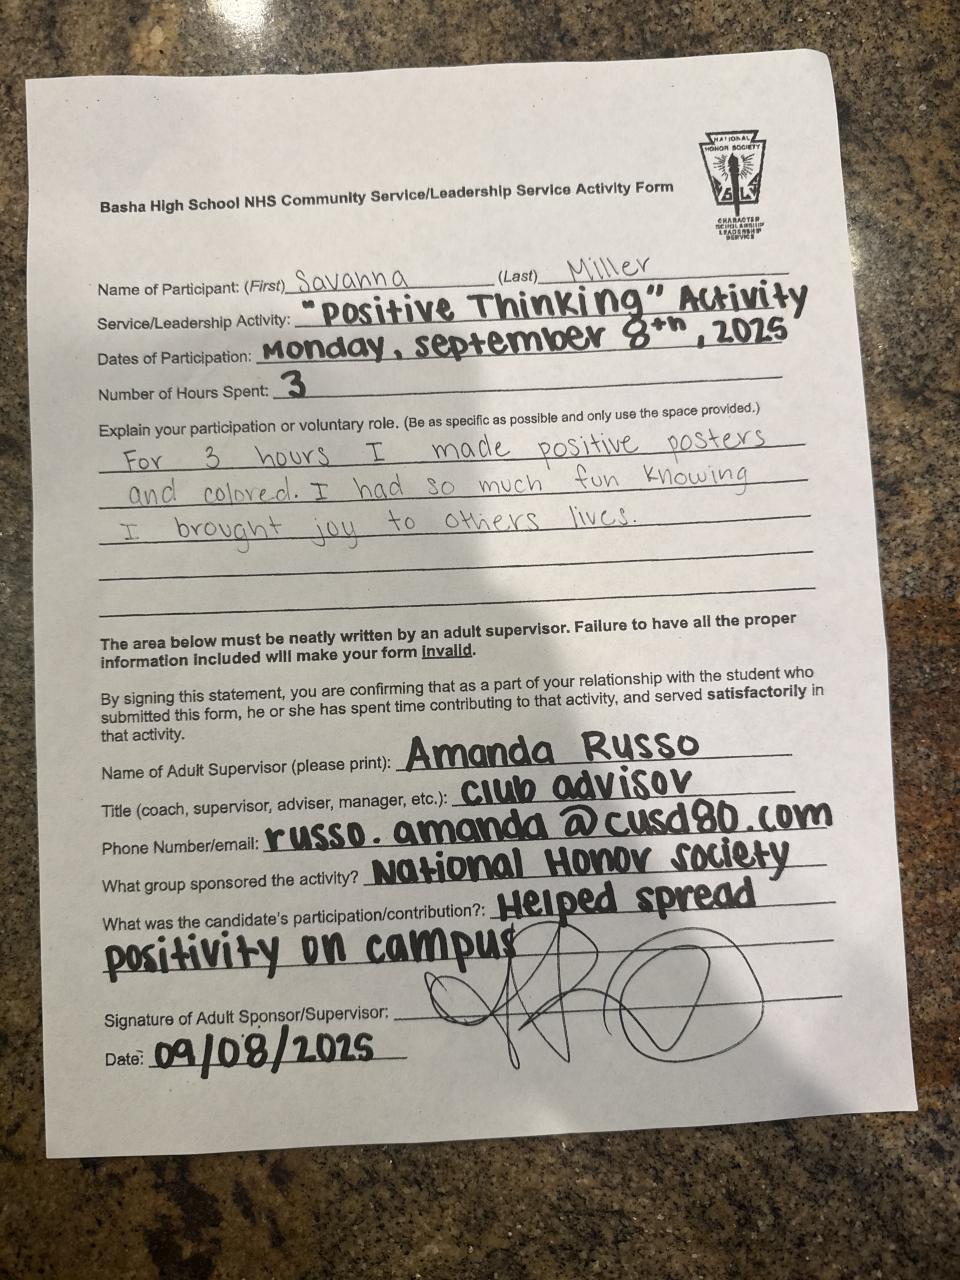 NATIONAL
HONOR SOCIETY
CHARACTER
SCHOLARSHIP
LEADERSHIP
SERVICE
Basha High School NHS Community Service/Leadership Service Activity Form
Name of Participant: (First) Savanna (Last) Miller
Service/Leadership Activity: "Positive Thinking" Activity
Dates of Participation: Monday, september 8th, 2025
Number of Hours Spent: 3
Explain your participation or voluntary role. (Be as specific as possible and only use the space provided.)
For 3 hours I made positive posters
and colored. I had so much fun knowing
I brought joy to others lives.
The area below must be neatly written by an adult supervisor. Failure to have all the proper
information included will make your form invalid.
By signing this statement, you are confirming that as a part of your relationship with the student who
submitted this form, he or she has spent time contributing to that activity, and served satisfactorily in
that activity.
Name of Adult Supervisor (please print): Amanda Russo
Title (coach, supervisor, adviser, manager, etc.): club advisor
Phone Number/email: russo.amanda@cusd80.com
What group sponsored the activity? National Honor Society
What was the candidate's participation/contribution?: Helped spread
positivity on campus
Signature of Adult Sponsor/Supervisor:
Date: 09/08/2025